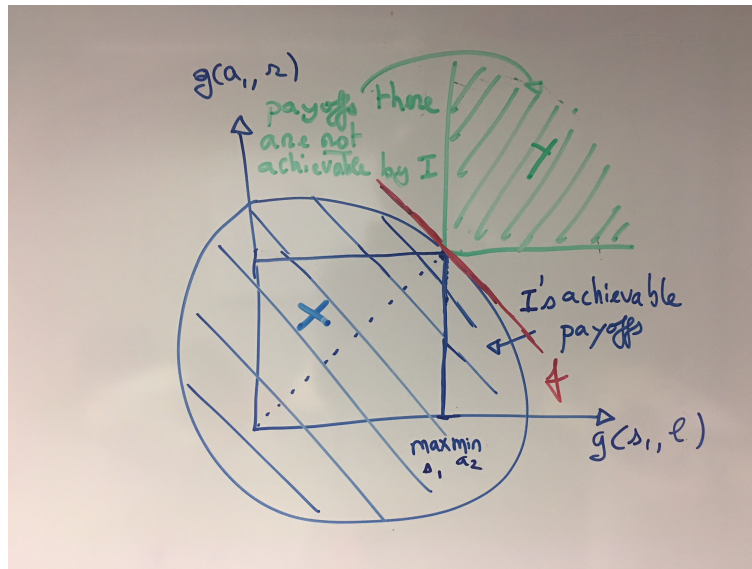 g(a₁, r)
payoffs there
are not
achievable by I
Y
X
I's achievable
payoffs
f
maxmin
s₁ a₂
g(s₁, l)